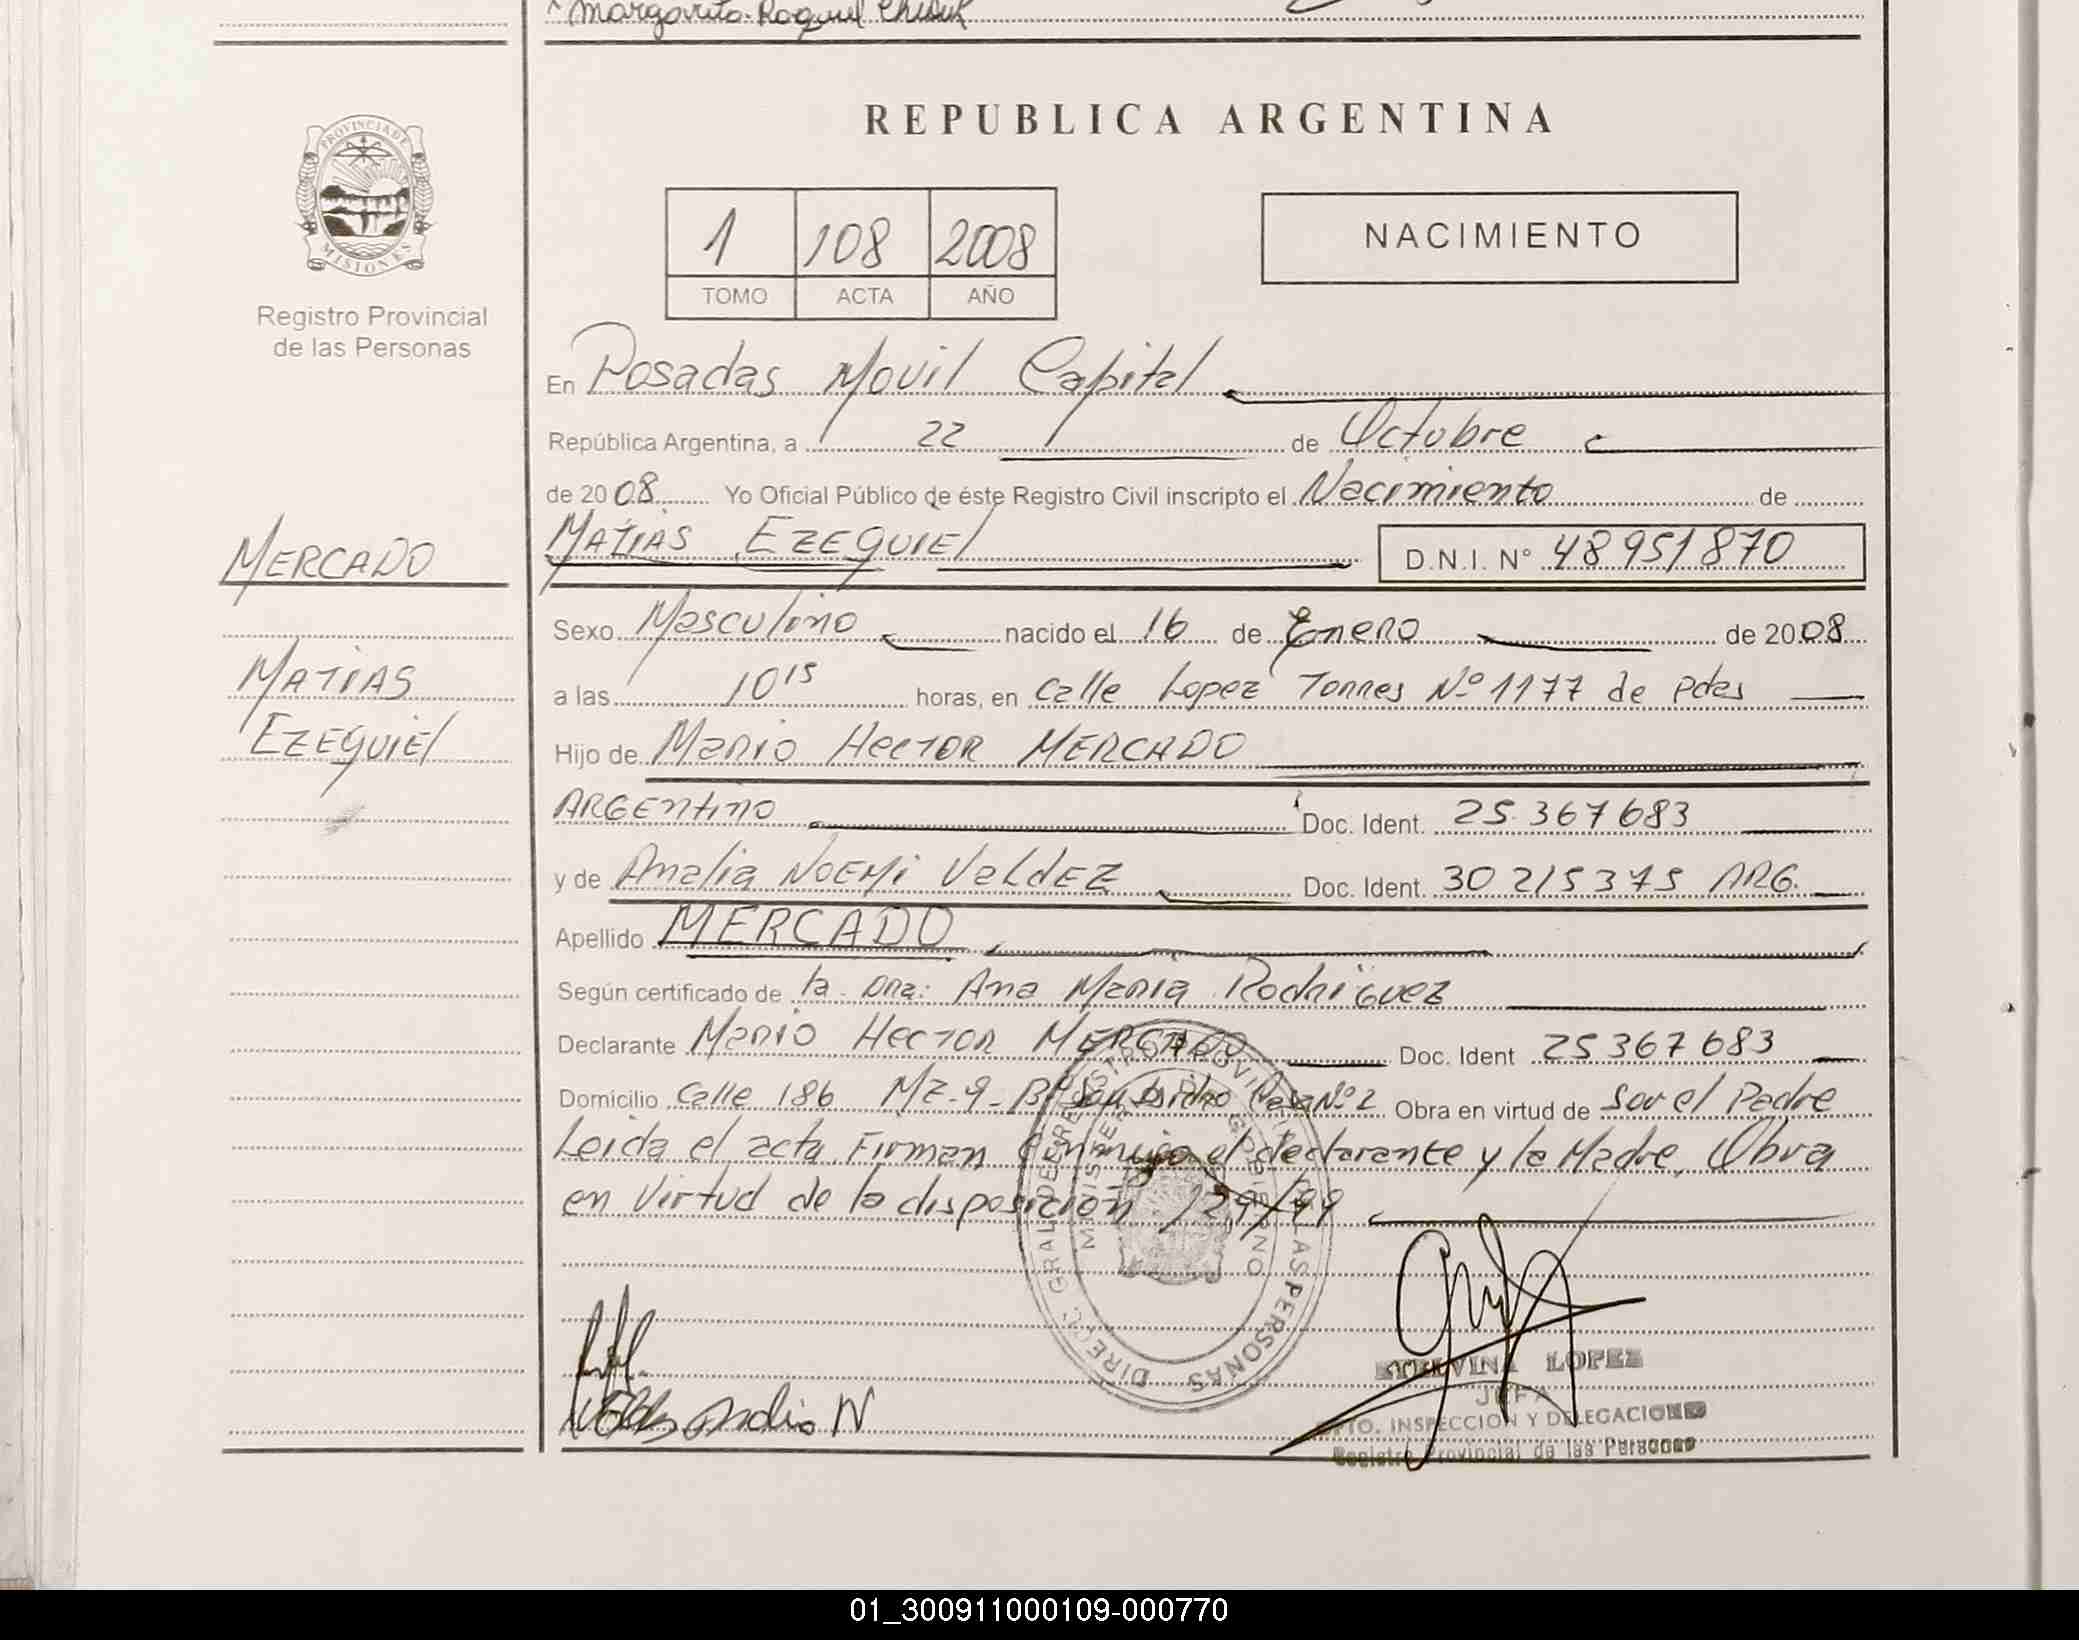 Margarita Raquel
REPUBLICA ARGENTINA
PROVINCIA DE
MISIONES
Registro Provincial
de las Personas
1 108 2008
TOMO ACTA AÑO
NACIMIENTO
En Posadas Movil Capital
República Argentina, a 22 de Octubre
de 2008 Yo Oficial Público de éste Registro Civil inscripto el Nacimiento de
MERCADO
MATIAS EZEQUIEL D.N.I. Nº 48951870
Sexo Masculino nacido el 16 de Enero de 2008
MATIAS
a las 10 15 horas, en calle Lopez Torres Nº 1177 de Pdas
EZEQUIEL
Hijo de Mario Hector MERCADO
ARGENTINO Doc. Ident. 25.367683
y de Amalia NOEMI ValdEZ Doc. Ident. 30215375 ARG.
Apellido MERCADO
Según certificado de la Dra: Ana Maria Rodriguez
Declarante Mario Hector MERCADO Doc. Ident 25367683
Domicilio calle 186 MZ-9- Bº San Isidro Casa Nº 2 Obra en virtud de Ser el Padre
Leida el acta Firman conmigo el declarante y la Madre, Obra
en Virtud de la disposición 129/99
DIRECC. GRAL. DE REGISTRO PROVINCIAL DE LAS PERSONAS
MINISTERIO DE GOBIERNO
ETELVINA LOPEZ
JEFA
DPTO. INSPECCION Y DELEGACIONES
Registro Provincial de las Personas
01_300911000109-000770